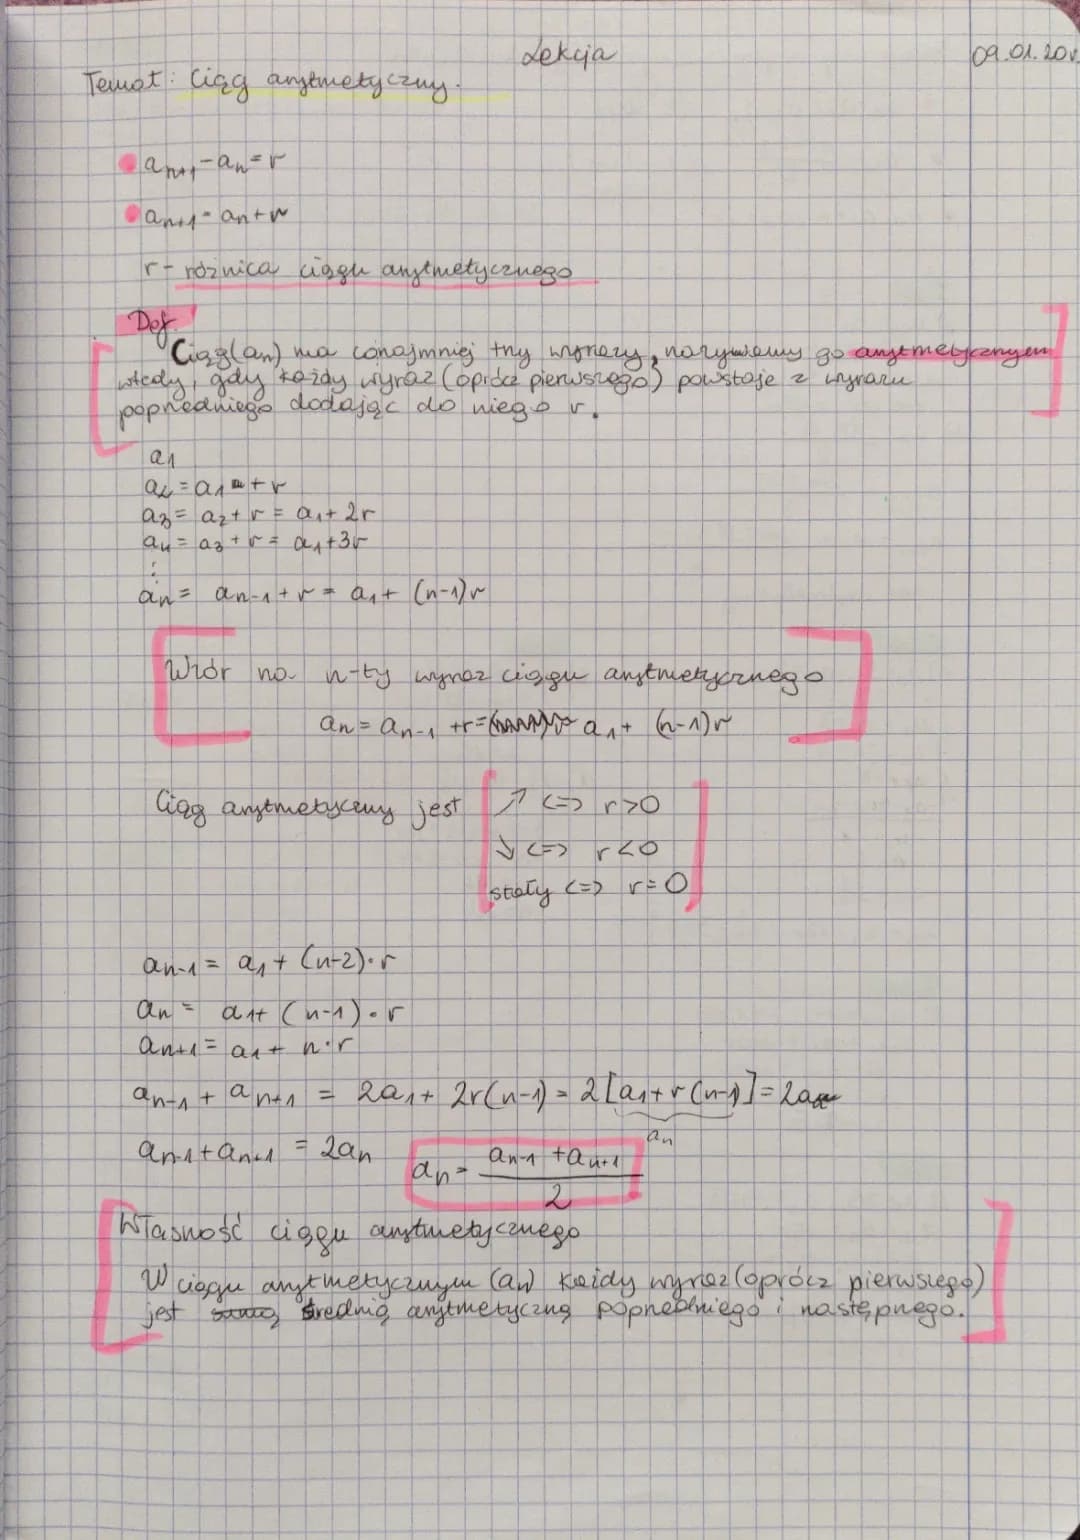 Lekcja
09.01.20
Temat: Ciąg arytmetyczny.
a_{n+1} - a_n = r
a_{n+1} = a_n + r
r - różnica ciągu arytmetycznego
Def.
Ciąg (a_n) ma conajmniej trzy wyrazy, nazywamy go arytmetycznym
wtedy, gdy każdy wyraz (oprócz pierwszego) powstaje z wyrazu
poprzedniego dodając do niego r.
a_1
a_2 = a_1 + r
a_3 = a_2 + r = a_1 + 2r
a_4 = a_3 + r = a_1 + 3r
⋮
a_n = a_{n-1} + r = a_1 + (n-1)r
Wzór na n-ty wyraz ciągu arytmetycznego
a_n = a_{n-1} + r = a_1 + (n-1)r
Ciąg arytmetyczny jest ↗ <=> r>0
↘ <=> r<0
stały <=> r=0
a_{n-1} = a_1 + (n-2)·r
a_n = a_1 + (n-1)·r
a_{n+1} = a_1 + n·r
a_{n-1} + a_{n+1} = 2a_1 + 2r(n-1) = 2[a_1 + r(n-1)] = 2a
a_n
a_{n-1} + a_{n+1} = 2a_n
a_n = \frac{a_{n-1} + a_{n+1}}{2}
Własność ciągu arytmetycznego
W ciągu arytmetycznym (a_n) każdy wyraz (oprócz pierwszego)
jest średnią arytmetyczną poprzedniego i następnego.